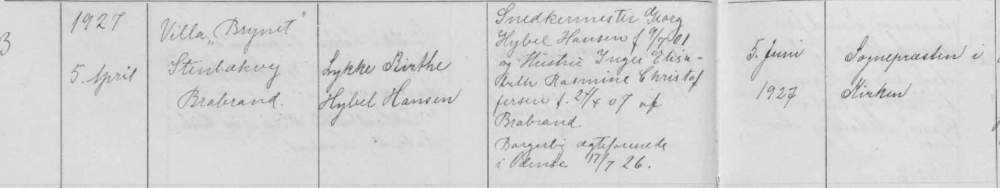 3
1927
5 April
Villa „Brynet“
Stenbækvej
Brabrand.
Lykke Birthe
Hybel Hansen
Snedkermester Georg
Hybel Hansen f.
og Hustru Inger Elisa-
beth Rasmine Christof
fersen f. 24/4 07 af
Brabrand.
Borgerlig ægteviede
i Odense 17/7 26.
5. Juni
1927
Sognepræsten i
Kirken